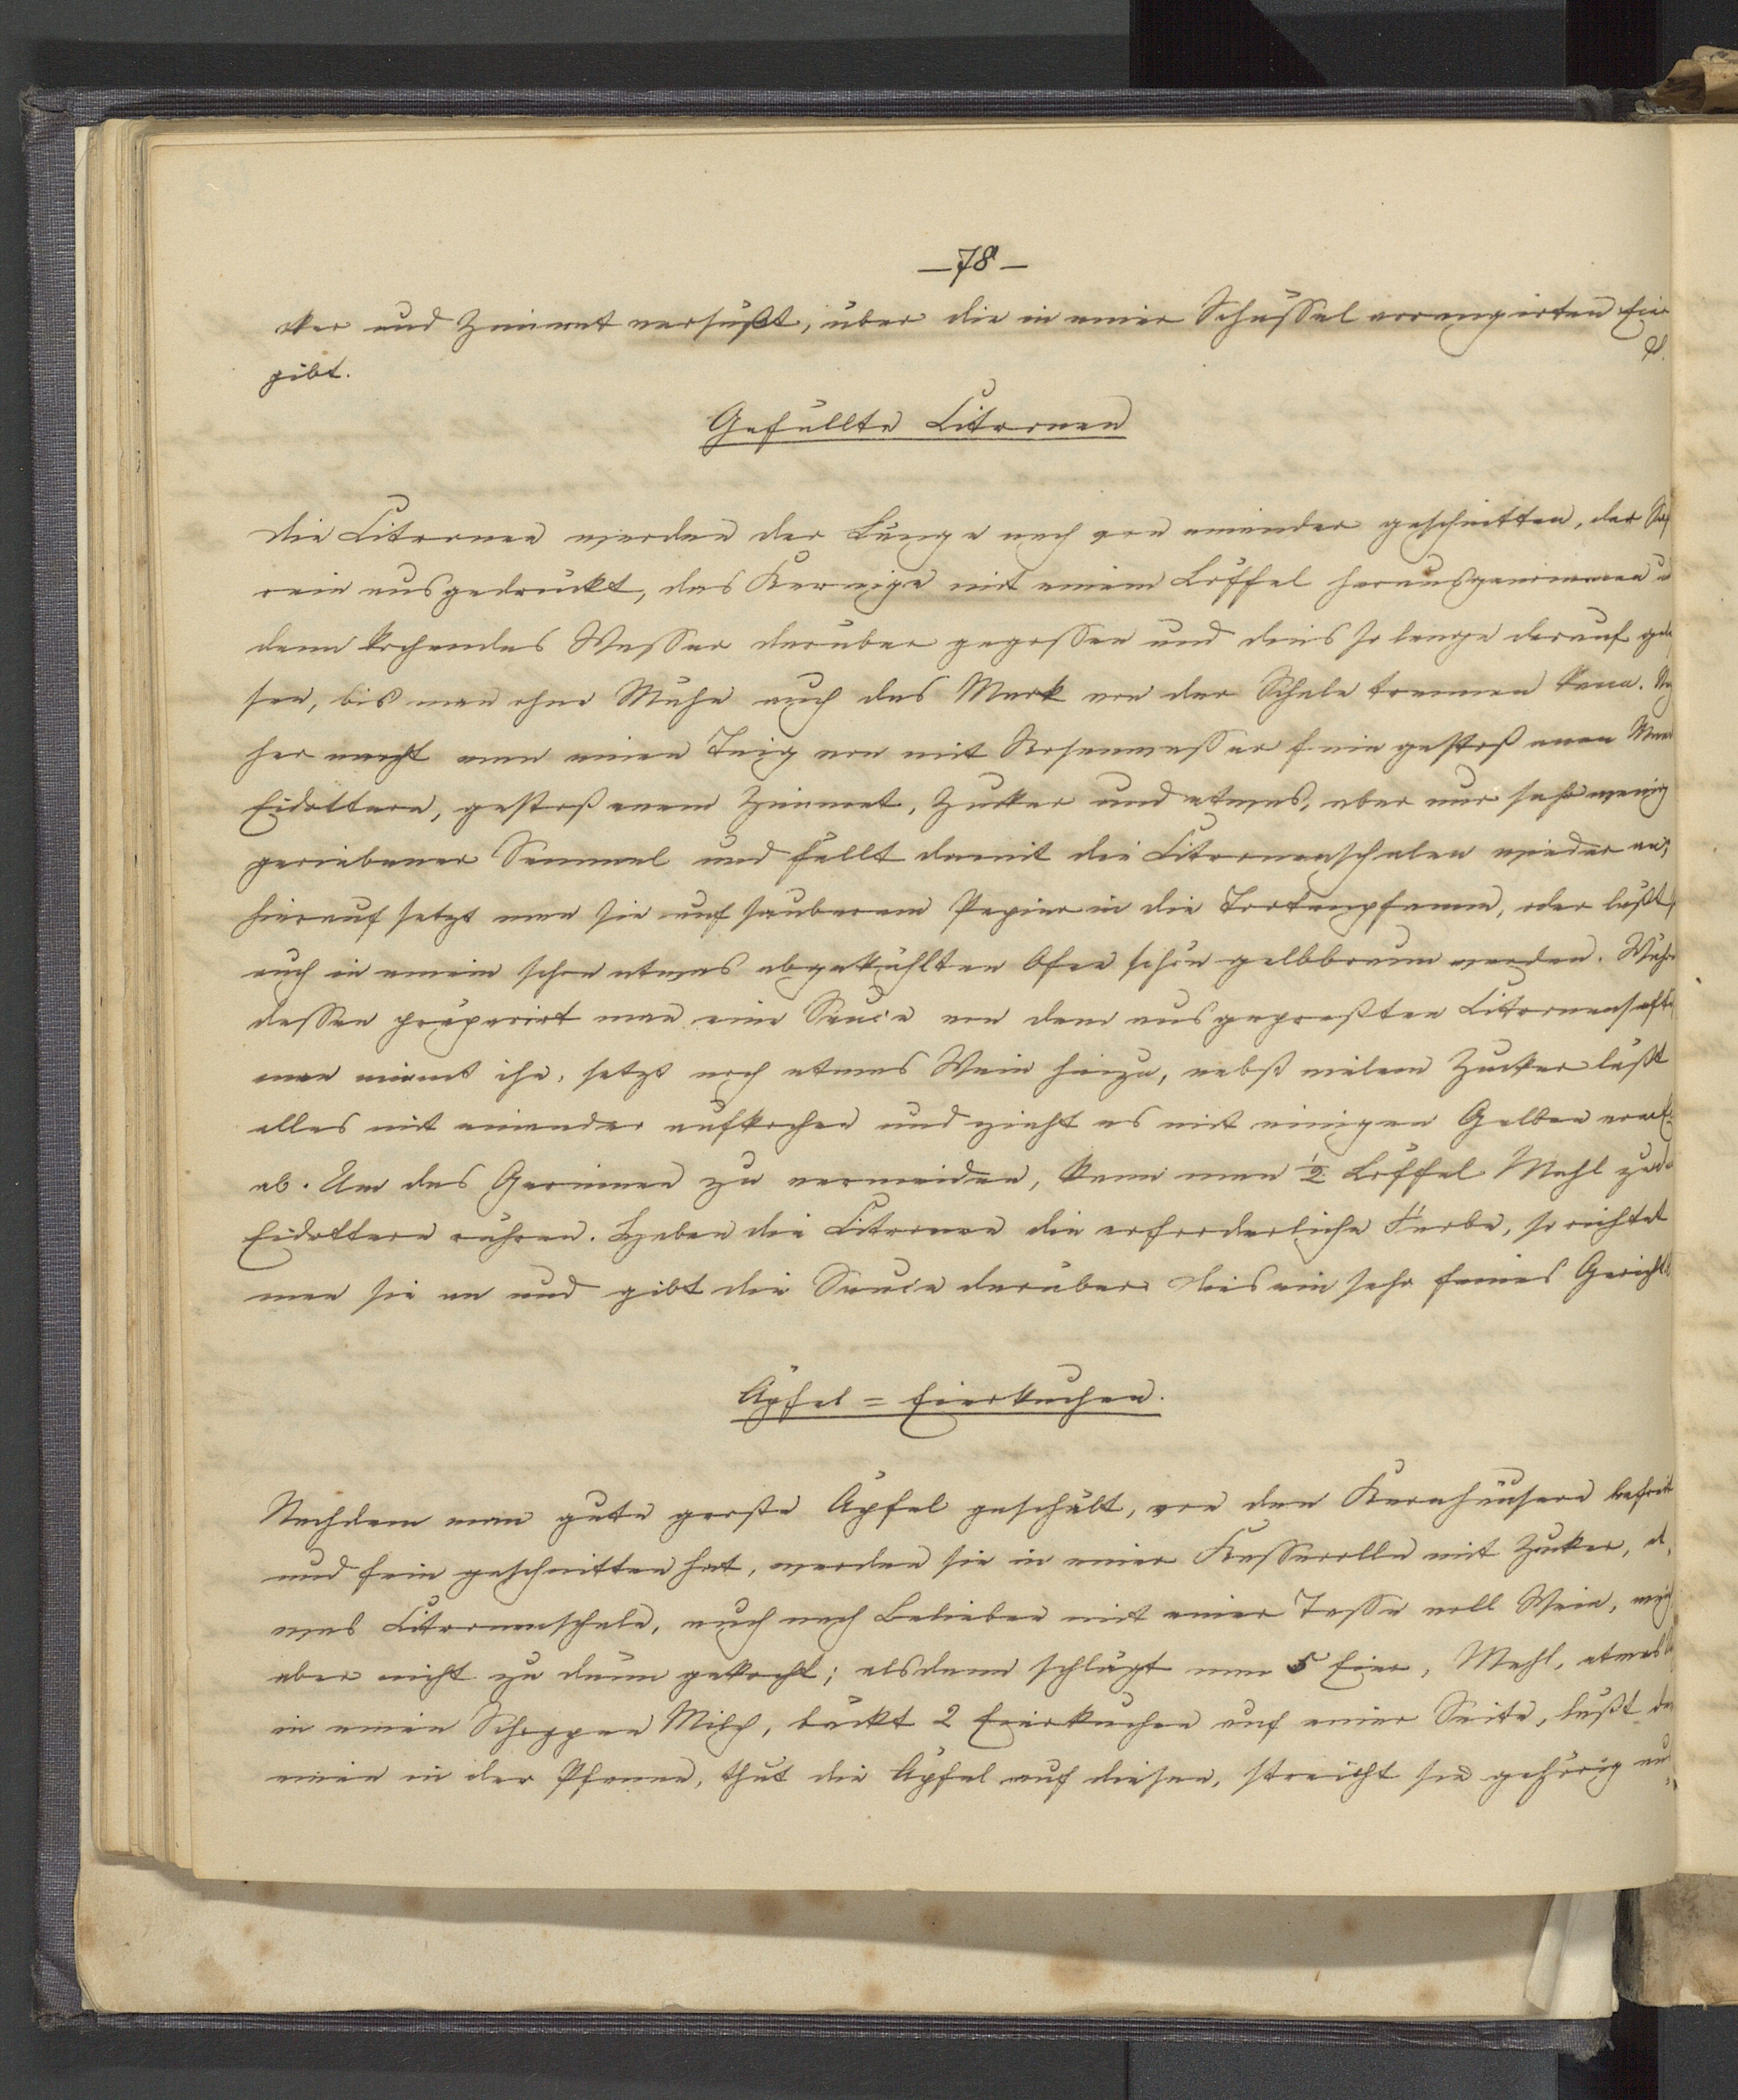 — 78 —
cker und Zimmt versüßt, über die in einer Schüssel arrangirten Eier
gibt.
Gefüllte Citronen
Die Citronen werden der Länge nach von einander geschnitten, der Saf
rein ausgedrückt, das Kernige mit einem Löffel herausgenommen u
dann kochendes Wasser darüber gegossen und dies so lange darauf gela
sen, bis man ohne Mühe auch das Mark von der Schale trennen kann. Na
her macht man einen Teig von mit Rosenwasser fein gestoßenen Man
Eidottern, gestoßenem Zimmet, Zucker und etwas, aber nur sehr wenig
geriebener Semmel und füllt damit die Citronenschalen wieder an,
hierauf setzt man sie auf sauberem Papier in die Tortenpfanne, oder läßt
auch in einem schon etwas abgekühlten Ofen schön gelbbraun werden. Währe
dessen präparirt man eine Sauce von dem ausgepreßten Citronensaft
man nimmt ihn, setzt noch etwas Wein hinzu, nebst vielem Zucker läßt
alles mit einander aufkochen und zieht es mit einigen Gelben vom E
ab. Um das Gerinnen zu vermeiden, kann man ½ Löffel Mehl zu d
Eidottern rühren. Haben die Citronen die erforderliche Farbe, so richtet
man sie an und gibt die Sauce darüber dies ein sehr feines Gericht
Äpfel = Eierkuchen.
Nachdem man gute große Äpfel geschält, von den Kernhäusern befreit
und fein geschnitten hat, werden sie in einer Kasserolle mit Zucker, et
was Citronenschale, auch nach Belieben mit einer Tasse voll Wein, weich
aber nicht zu dünn gekocht; alsdann schlägt man 5 Eier, Mehl, etwas
in einen Schoppen Milch, bäckt 2 Eierkuchen auf einer Seite, läßt den
einen in der Pfanne, thut die Äpfel auf diesen, streicht sie gehörig aus